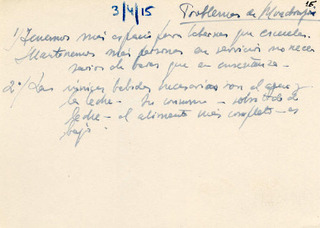 3/4/15
Problemas de
15.
1º) Tenemos más espacio para tabernas que escuelas.
Mantenemos más personas en servicios no nece-
sarios de bares que en enseñanza.-
2º) Las únicas bebidas necesarias son el agua y
la leche - Su consumo - sobre todo de
leche - el alimento más completo - es
bajo.